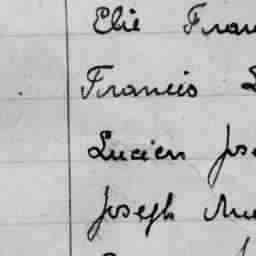 Elie Fran
Francis
Lucien Jos
Joseph